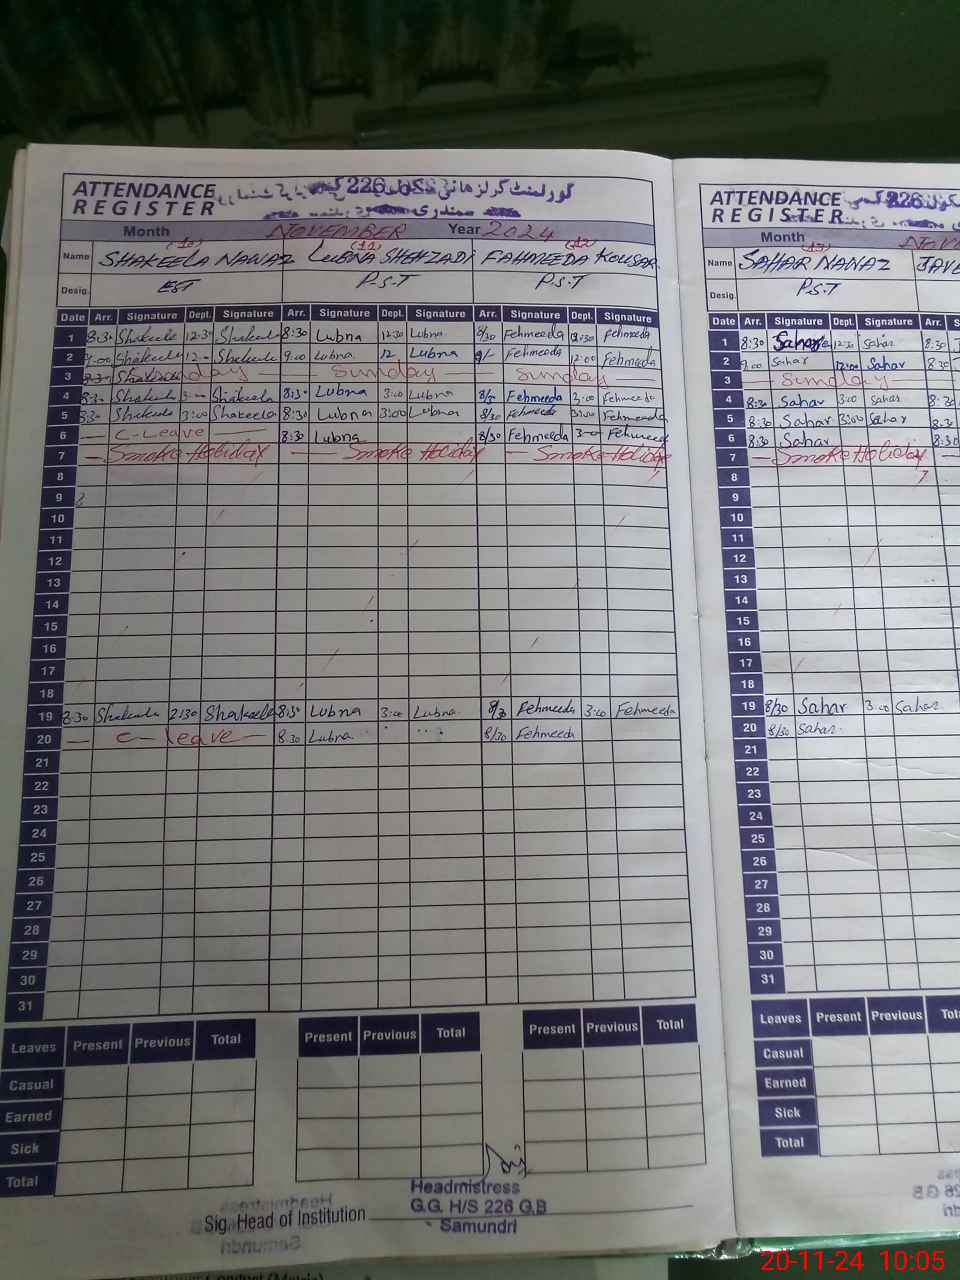 ATTENDANCE REGISTER
Month NOVEMBER Year 2024
(10) (11) (12)
Name SHAKEELA NAWAZ LUBNA SHEHZADI FAHMEEDA KOUSAR
Desig. EST P.S.T P.S.T
Date Arr. Signature Dept. Signature Arr. Signature Dept. Signature Arr. Signature Dept. Signature
1 8:30 Shakeela 12:30 Shakeela 8:30 Lubna 12:30 Lubna 8/30 Fehmeeda 12:30 Fehmeeda
2 9:00 Shakeela 12 Shakeela 9:00 Lubna 12 Lubna 9/ Fehmeeda 12:00 Fehmeeda
3 Sunday Sunday
4 8:30 Shakeela 3:00 Shakeela 8:30 Lubna 3:00 Lubna Fehmeeda 3:00 Fehmeeda
5 8:30 Shakeela 3:00 Shakeela 8:30 Lubna 3:00 Lubna 8/30 Fehmeeda 3:00 Fehmeeda
6 — C-Leave — 8:30 Lubna 8/30 Fehmeeda 3:00 Fehmeeda
7 — Smoke Holiday — Smoke Holiday — Smoke Holiday
8
9
10
11
12
13
14
15
16
17
18
19 8:30 Shakeela 2:30 Shakeela 8:30 Lubna 3:00 Lubna 8/30 Fehmeeda 3:00 Fehmeeda
20 — C-leave — 8:30 Lubna 8/30 Fehmeeda
21
22
23
24
25
26
27
28
29
30
31
Leaves Present Previous Total Present Previous Total Present Previous Total
Casual
Earned
Sick
Total
Headmistress
G.G. H/S 226 G.B
Samundri
Sig. Head of Institution
ATTENDANCE REGISTER
Month
(13)
Name SAHAR NAWAZ
Desig. P.S.T
Date Arr. Signature Dept. Signature Arr.
1 8:30 Sahar 12:30 Sahar 8:30
2 9:00 Sahar 12:00 Sahar 8:30
3 — Sunday —
4 8:30 Sahar 3:00 Sahar 8:30
5 8:30 Sahar 3:00 Sahar 8:30
6 8:30 Sahar 8:30
7 — Smoke Holiday
8
9
10
11
12
13
14
15
16
17
18
19 8/30 Sahar 3:00 Sahar
20 8/30 Sahar
21
22
23
24
25
26
27
28
29
30
31
Leaves Present Previous
Casual
Earned
Sick
Total
20-11-24 10:05